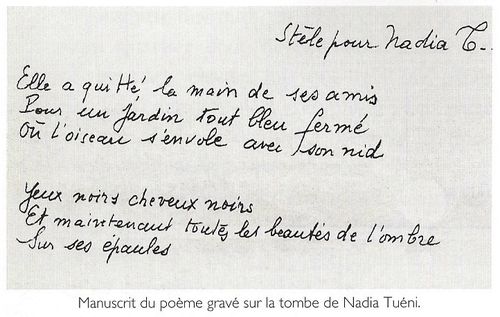 Stèle pour Nadia T..
Elle a quitté la main de ses amis
Pour un jardin tout bleu fermé
Où l'oiseau s'envole avec son nid
Yeux noirs cheveux noirs
Et maintenant toutes les beautés de l'ombre
Sur ses épaules
Manuscrit du poème gravé sur la tombe de Nadia Tuéni.